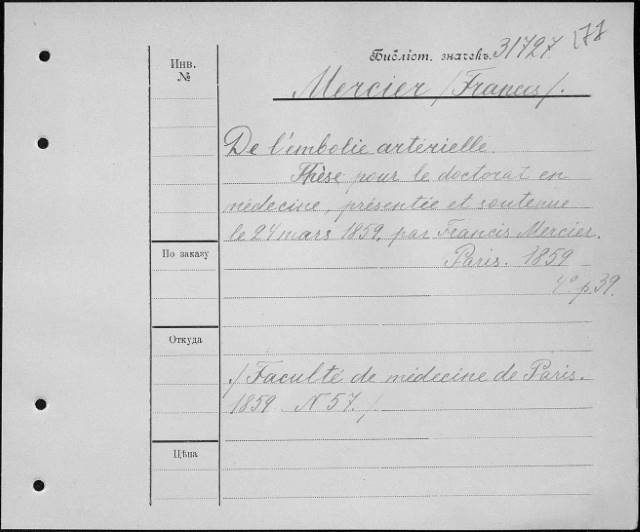 Библіот. значекъ. 31727
Инв.
№
Mercier /Francis/.
De l'embolie artérielle.
Thèse pour le doctorat en
médecine, présentée et soutenue
le 24 mars 1859, par Francis Mercier.
По заказу
Paris. 1859
4° p. 39.
Откуда
/Faculté de médecine de Paris.
1859 N 57./
Цѣна